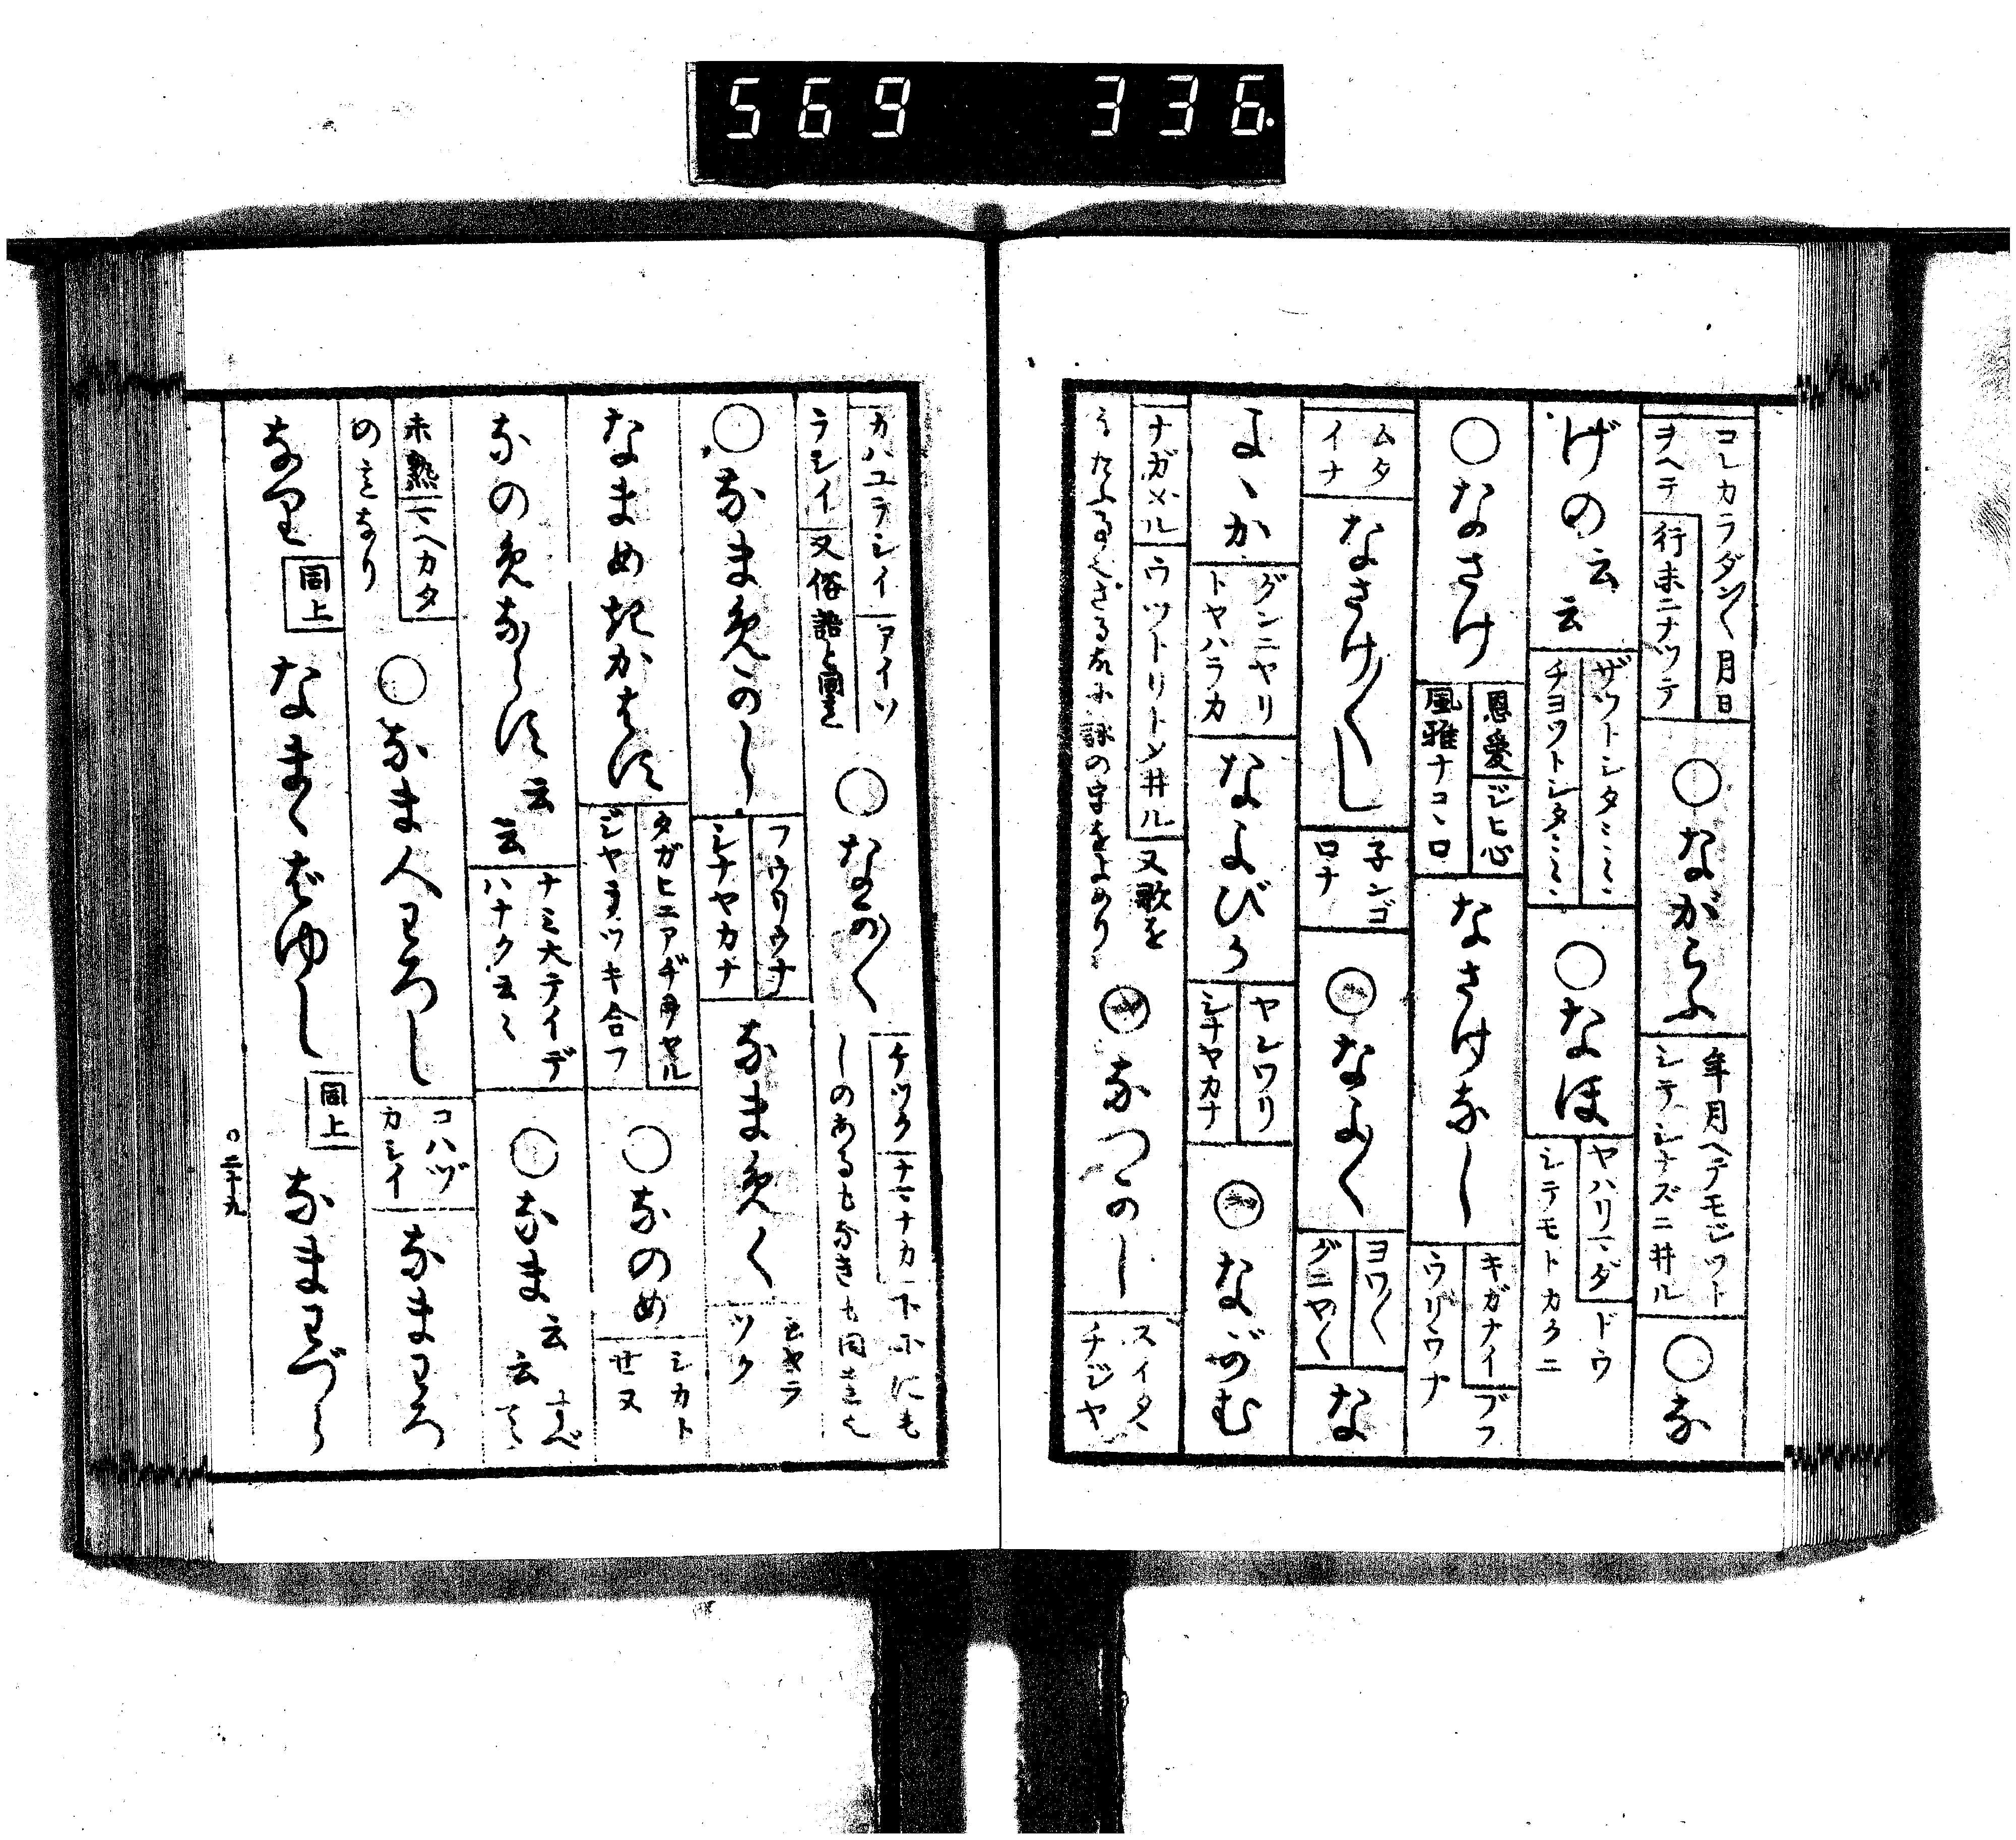 569 336.
コレカラダン〳〵月日
ヲヘテ 行末ニナツテ
○ながらふ
年月ヘテモジツト
シテシナズニ井ル
○な
げの云云
ザツトシタ
チヨツトシタ
○なほ
ヤハリマダ ドウ
シテモトカクニ
○なさけ
恩愛 ジヒ心
風雅ナコヽロ
なさけなし
キガナイ ブフ
ウリウナ
ムタ
イナ
なさけ〳〵し
子ンゴ
ロナ
○なよ〳〵
ヨワ〳〵
グニヤ〳〵
な
よゝか
グンニヤリ
トヤハラカ
なよびか
ヤンワリ
シナヤカナ
○なごむ
ナガメル ウツトリト 井ル 又歌を
○なつかし
スイタ
チジヤ
カハユラシイ アイソ
ラシイ 又俗語と同意
○なか〳〵
ケツク ナマナカ 下ににも
しのあるもなきも同意
○なまめかし
フウリウナ
シナヤカナ
なまめく
ツク
なまめきかはす
タガヒニアヂヲヤル
ジヤラツキ合フ
○なのめ
シカト
セヌ
なのめならず云云
ナミ大テイデ
ハナク云々
○なま云云
未熟 マヘカタ
めきなり
○なま人わろし
コハヅ
カシイ
なまわろ
なり 同上
なまゝばゆし 同上
なまわづら
○二十九